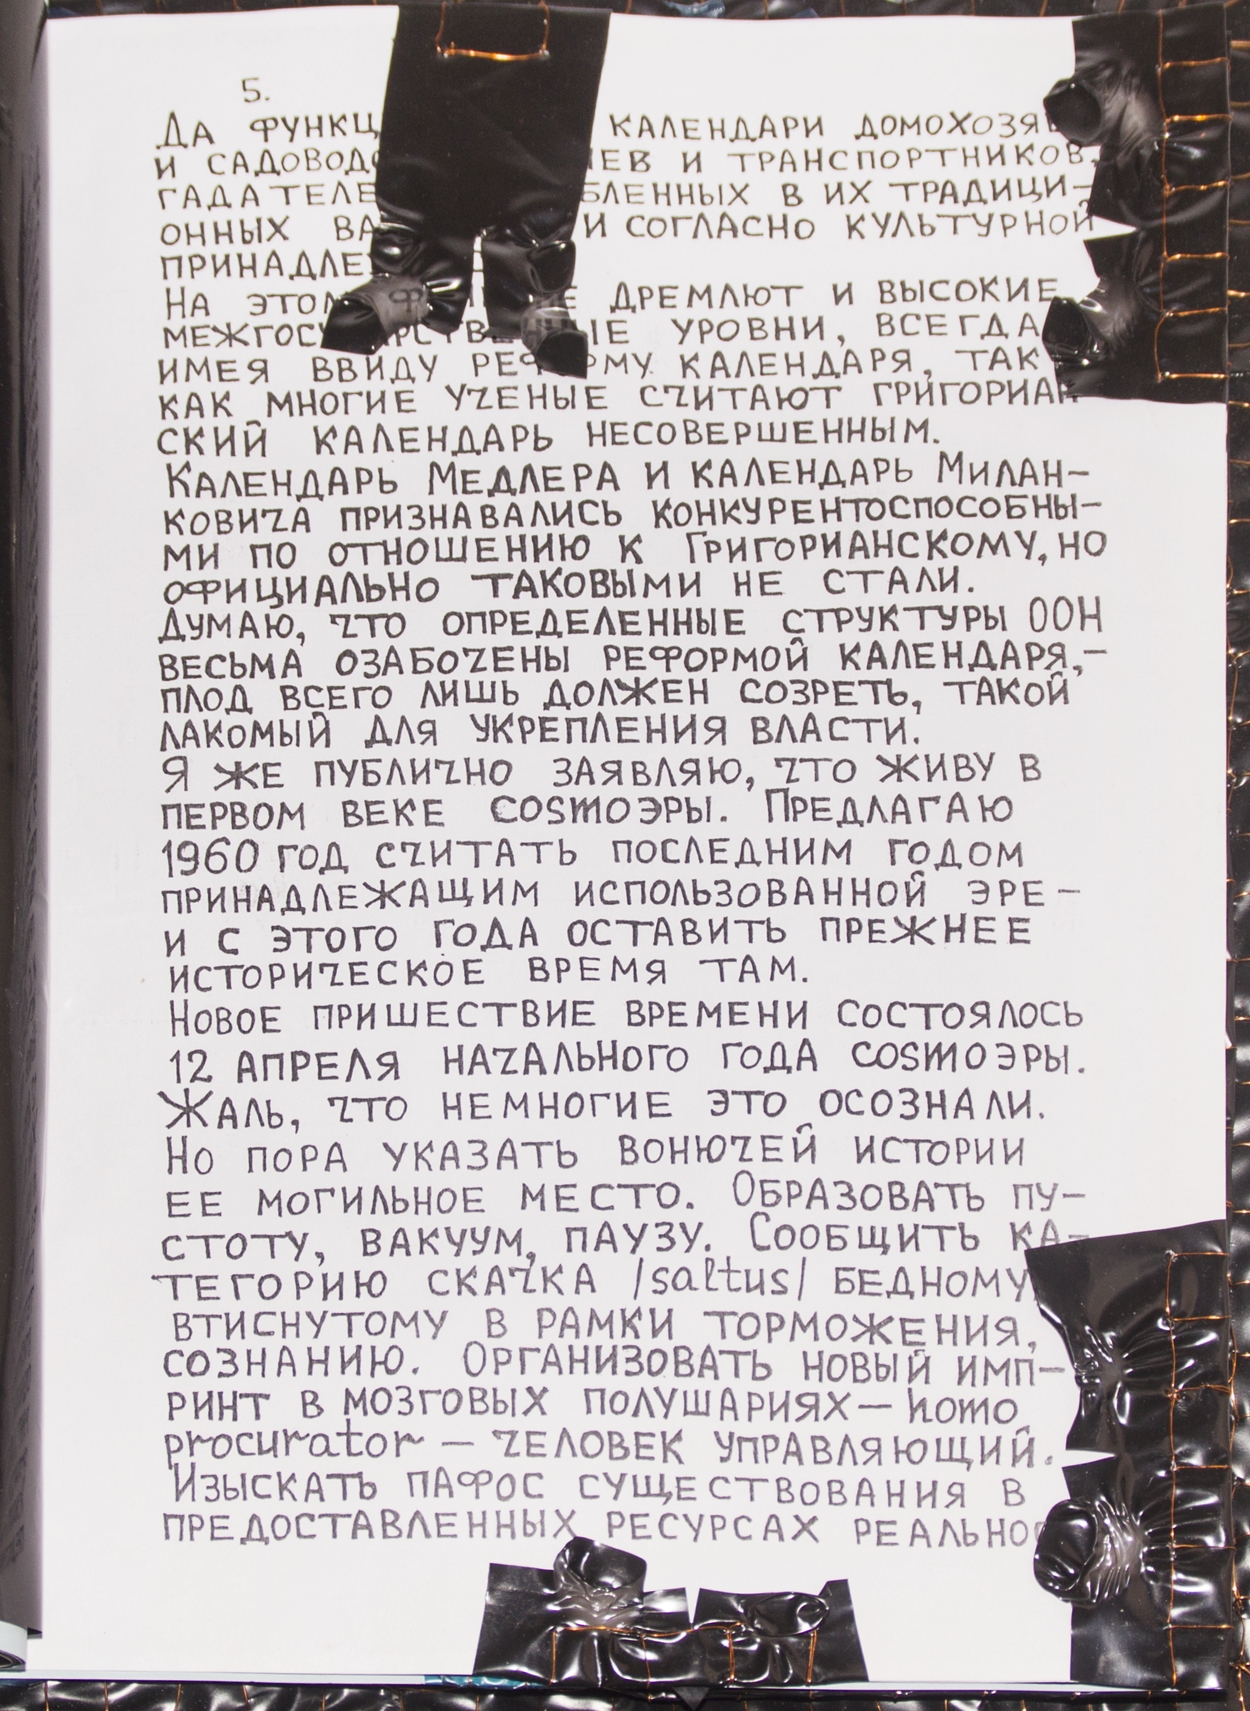 5.
Да функц календари домохозя
и садовод ев и транспортников,
гадателе бленных в их традици-
онных ва и согласно культурной
принадле
На этом дремлют и высокие
межгосударственные уровни, всегда
имея ввиду реформу календаря, так
как многие ученые считают григориан-
ский календарь несовершенным.
Календарь Медлера и календарь Милан-
ковича признавались конкурентоспособны-
ми по отношению к Григорианскому, но
официально таковыми не стали.
Думаю, что определенные структуры ООН
весьма озабочены реформой календаря,-
плод всего лишь должен созреть, такой
лакомый для укрепления власти.
Я же публично заявляю, что живу в
первом веке cosmoэры. Предлагаю
1960 год считать последним годом
принадлежащим использованной эре -
и с этого года оставить прежнее
историческое время там.
Новое пришествие времени состоялось
12 апреля начального года cosmoэры.
Жаль, что немногие это осознали.
Но пора указать вонючей истории
ее могильное место. Образовать пу-
стоту, вакуум, паузу. Сообщить ка-
тегорию скачка /saltus/ бедному
втиснутому в рамки торможения,
сознанию. Организовать новый имп-
ринт в мозговых полушариях — homo
procurator — человек управляющий.
Изыскать пафос существования в
предоставленных ресурсах реально